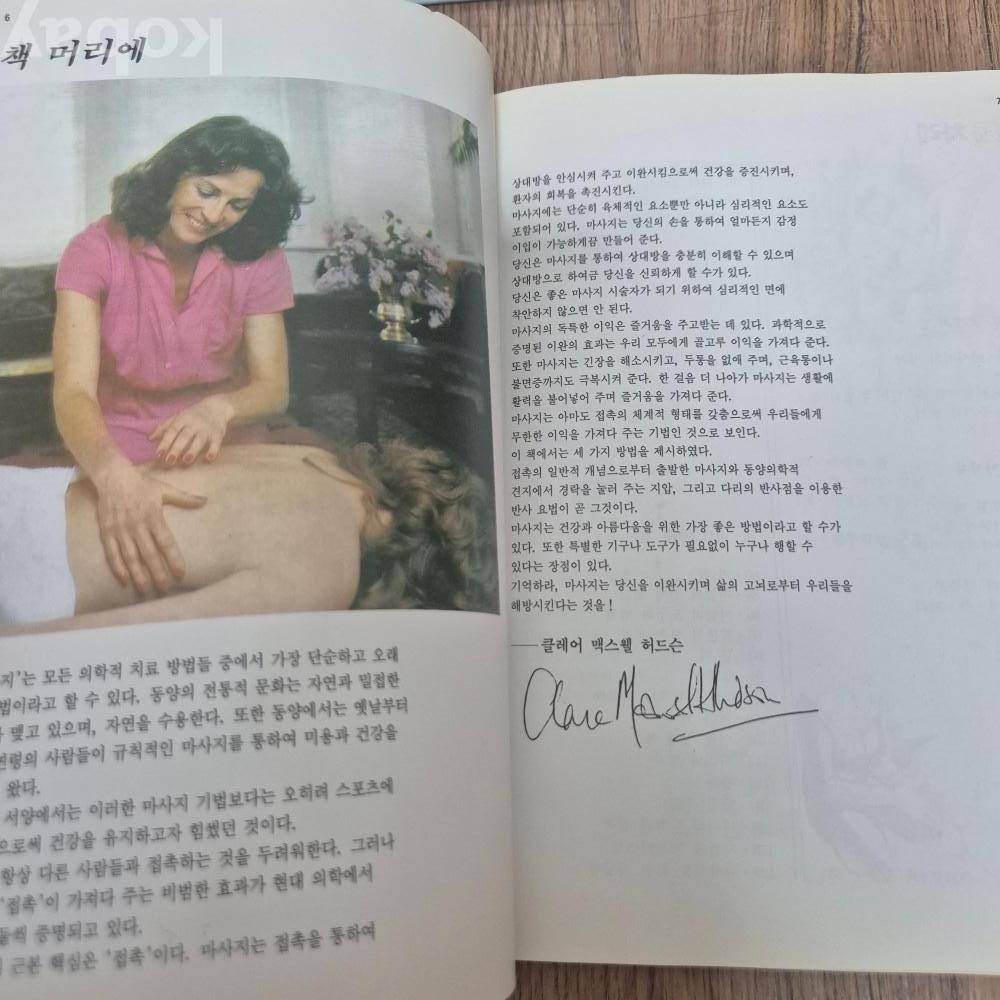 6
책 머리에
지’는 모든 의학적 치료 방법들 중에서 가장 단순하고 오래
법이라고 할 수 있다. 동양의 전통적 문화는 자연과 밀접한
맺고 있으며, 자연을 수용한다. 또한 동양에서는 옛날부터
연령의 사람들이 규칙적인 마사지를 통하여 미용과 건강을
왔다.
서양에서는 이러한 마사지 기법보다는 오히려 스포츠에
으로써 건강을 유지하고자 힘썼던 것이다.
항상 다른 사람들과 접촉하는 것을 두려워한다. 그러나
‘접촉’이 가져다 주는 비범한 효과가 현대 의학에서
들씩 증명되고 있다.
근본 핵심은 ‘접촉’이다. 마사지는 접촉을 통하여
7
상대방을 안심시켜 주고 이완시킴으로써 건강을 증진시키며,
환자의 회복을 촉진시킨다.
마사지에는 단순히 육체적인 요소뿐만 아니라 심리적인 요소도
포함되어 있다. 마사지는 당신의 손을 통하여 얼마든지 감정
이입이 가능하게끔 만들어 준다.
당신은 마사지를 통하여 상대방을 충분히 이해할 수 있으며
상대방으로 하여금 당신을 신뢰하게 할 수가 있다.
당신은 좋은 마사지 시술자가 되기 위하여 심리적인 면에
착안하지 않으면 안 된다.
마사지의 독특한 이익은 즐거움을 주고받는 데 있다. 과학적으로
증명된 이완의 효과는 우리 모두에게 골고루 이익을 가져다 준다.
또한 마사지는 긴장을 해소시키고, 두통을 없애 주며, 근육통이나
불면증까지도 극복시켜 준다. 한 걸음 더 나아가 마사지는 생활에
활력을 불어넣어 주며 즐거움을 가져다 준다.
마사지는 아마도 접촉의 체계적 형태를 갖춤으로써 우리들에게
무한한 이익을 가져다 주는 기법인 것으로 보인다.
이 책에서는 세 가지 방법을 제시하였다.
접촉의 일반적 개념으로부터 출발한 마사지와 동양의학적
견지에서 경락을 눌러 주는 지압, 그리고 다리의 반사점을 이용한
반사 요법이 곧 그것이다.
마사지는 건강과 아름다움을 위한 가장 좋은 방법이라고 할 수가
있다. 또한 특별한 기구나 도구가 필요없이 누구나 행할 수
있다는 장점이 있다.
기억하라, 마사지는 당신을 이완시키며 삶의 고뇌로부터 우리들을
해방시킨다는 것을!
──클레어 맥스웰 허드슨
Clare Maxwell Hudson
kobay